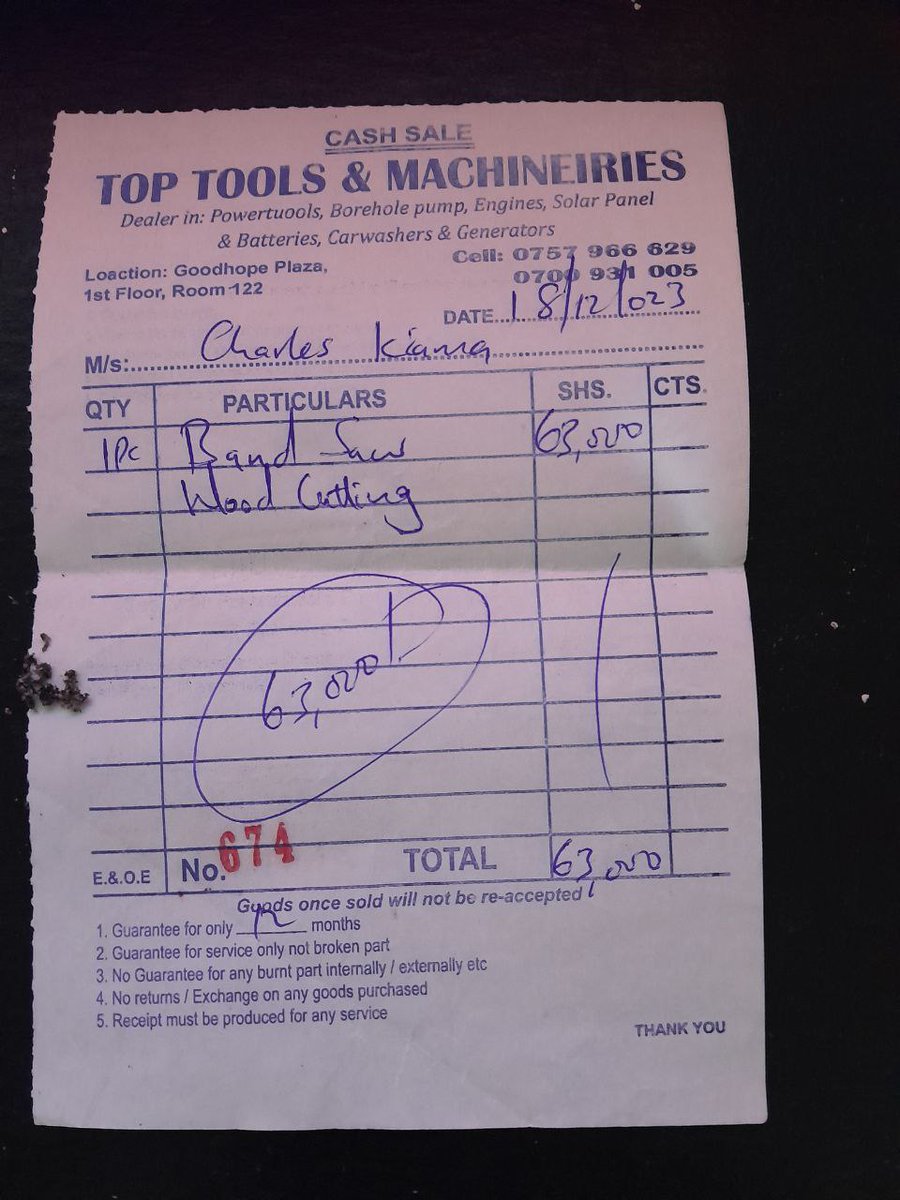 CASH SALE
TOP TOOLS & MACHINEIRIES
Dealer in: Powertuools, Borehole pump, Engines, Solar Panel
& Batteries, Carwashers & Generators
Loaction: Goodhope Plaza,
1st Floor, Room 122
Cell: 0757 966 629
0700 931 005
DATE 18/12/023
M/s: Charles
QTY PARTICULARS SHS. CTS.
1Pc Band Saw 63,000
Wood Cutting
63,000
E.&.O.E No. 674 TOTAL 63,000
Goods once sold will not be re-accepted
1. Guarantee for only 12 months
2. Guarantee for service only not broken part
3. No Guarantee for any burnt part internally / externally etc
4. No returns / Exchange on any goods purchased
5. Receipt must be produced for any service
THANK YOU